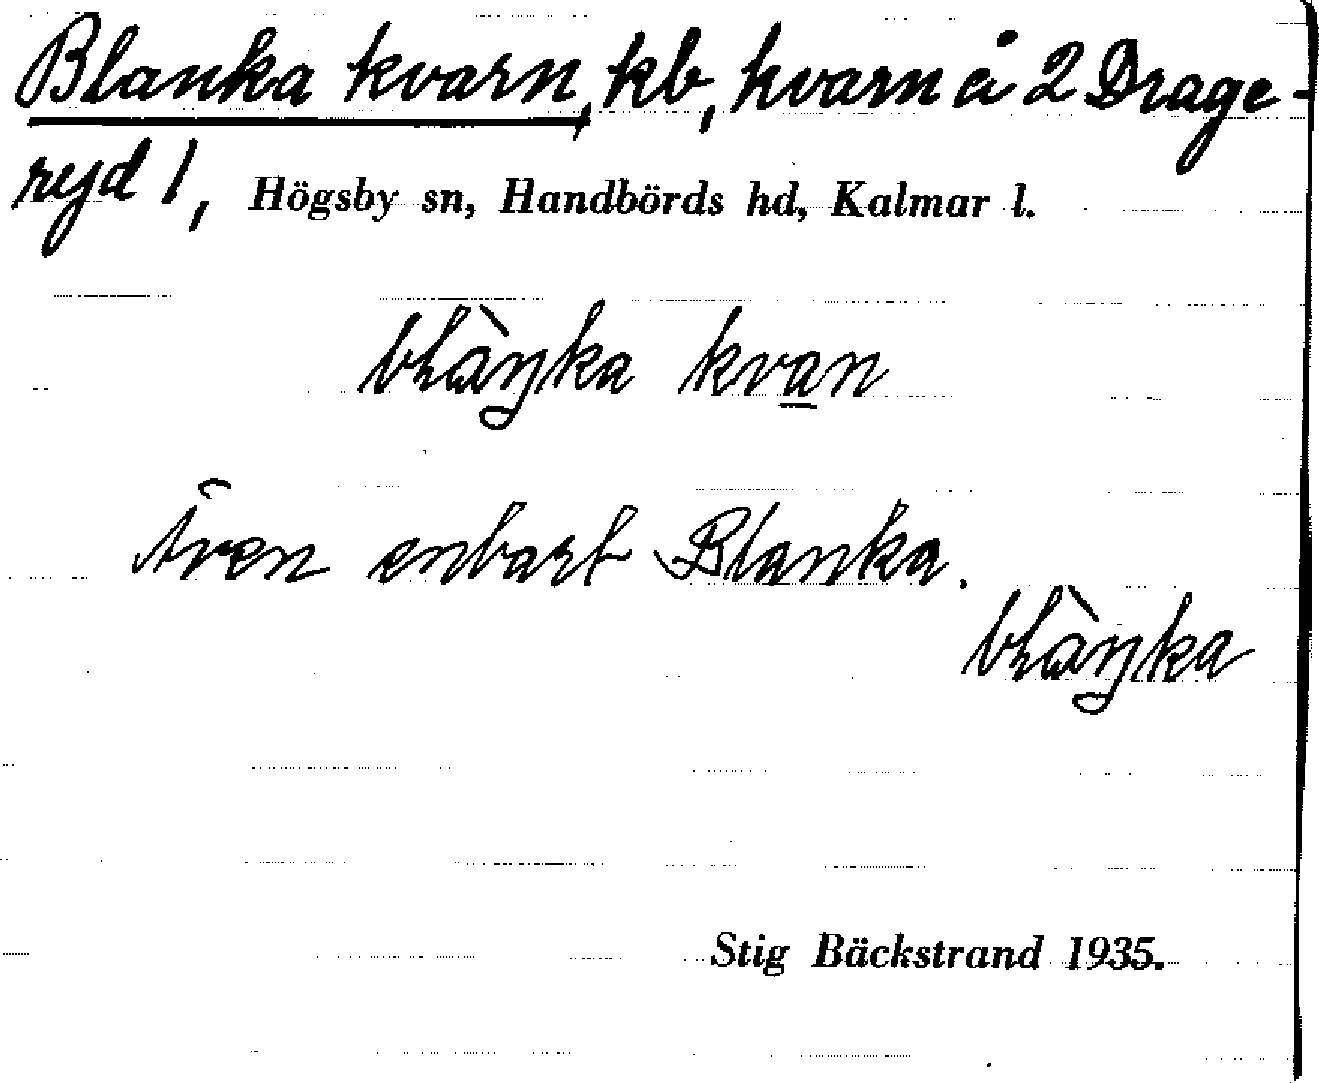 Blanka kvarn, kb, kvarn å 2 Drage-
ryd 1, Högsby sn, Handbörds hd, Kalmar l.
blàŋka kvan
Även enbart Blanka.
blàŋka
Stig Bäckstrand 1935.